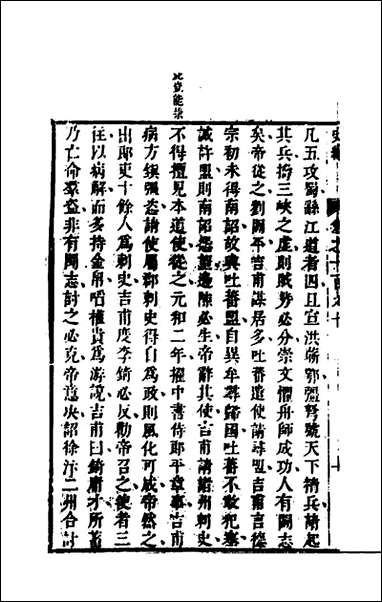 凡五攻蜀繇江道者四且宣洪蘄鄂彊弩號天下精兵請起
其兵擣三峽之虛則賊勢必分崇文懼舟師成功人有鬭志
矣帝從之劉闢平吉甫謀居多吐蕃遣使請尋盟吉甫言德
宗初未得南詔故與吐蕃盟自異牟尋歸國吐蕃不敢犯塞
誠許盟則南詔怨望邊隙必生帝辭其使吉甫請諸州刺史
不得擅見本道使從之元和二年擢中書侍郎平章事吉甫
病方鎮彊恣請使屬郡刺史得自為政則風化可成帝然之
出郎吏十餘人為刺史吉甫度李錡必反勸帝召之使者三
往以病解而多持金帛啗權貴為游說吉甫曰錡庸才所蓄
乃亡命羣盜非有鬭志討之必克帝意決詔徐汴二州合討